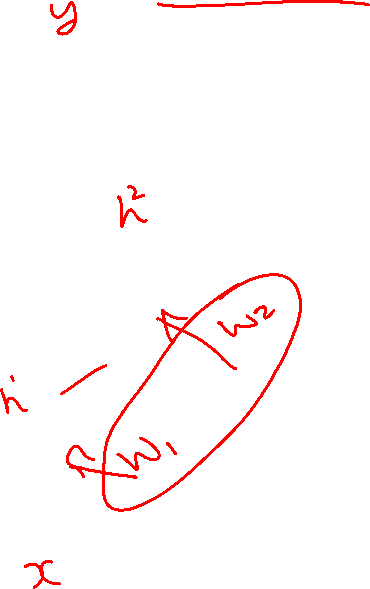 y
h²
W₂
h¹
W₁
x